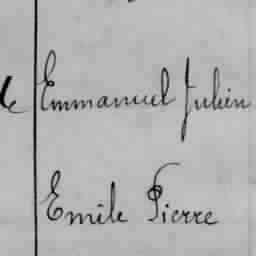 Emmanuel Julien
Emile Pierre